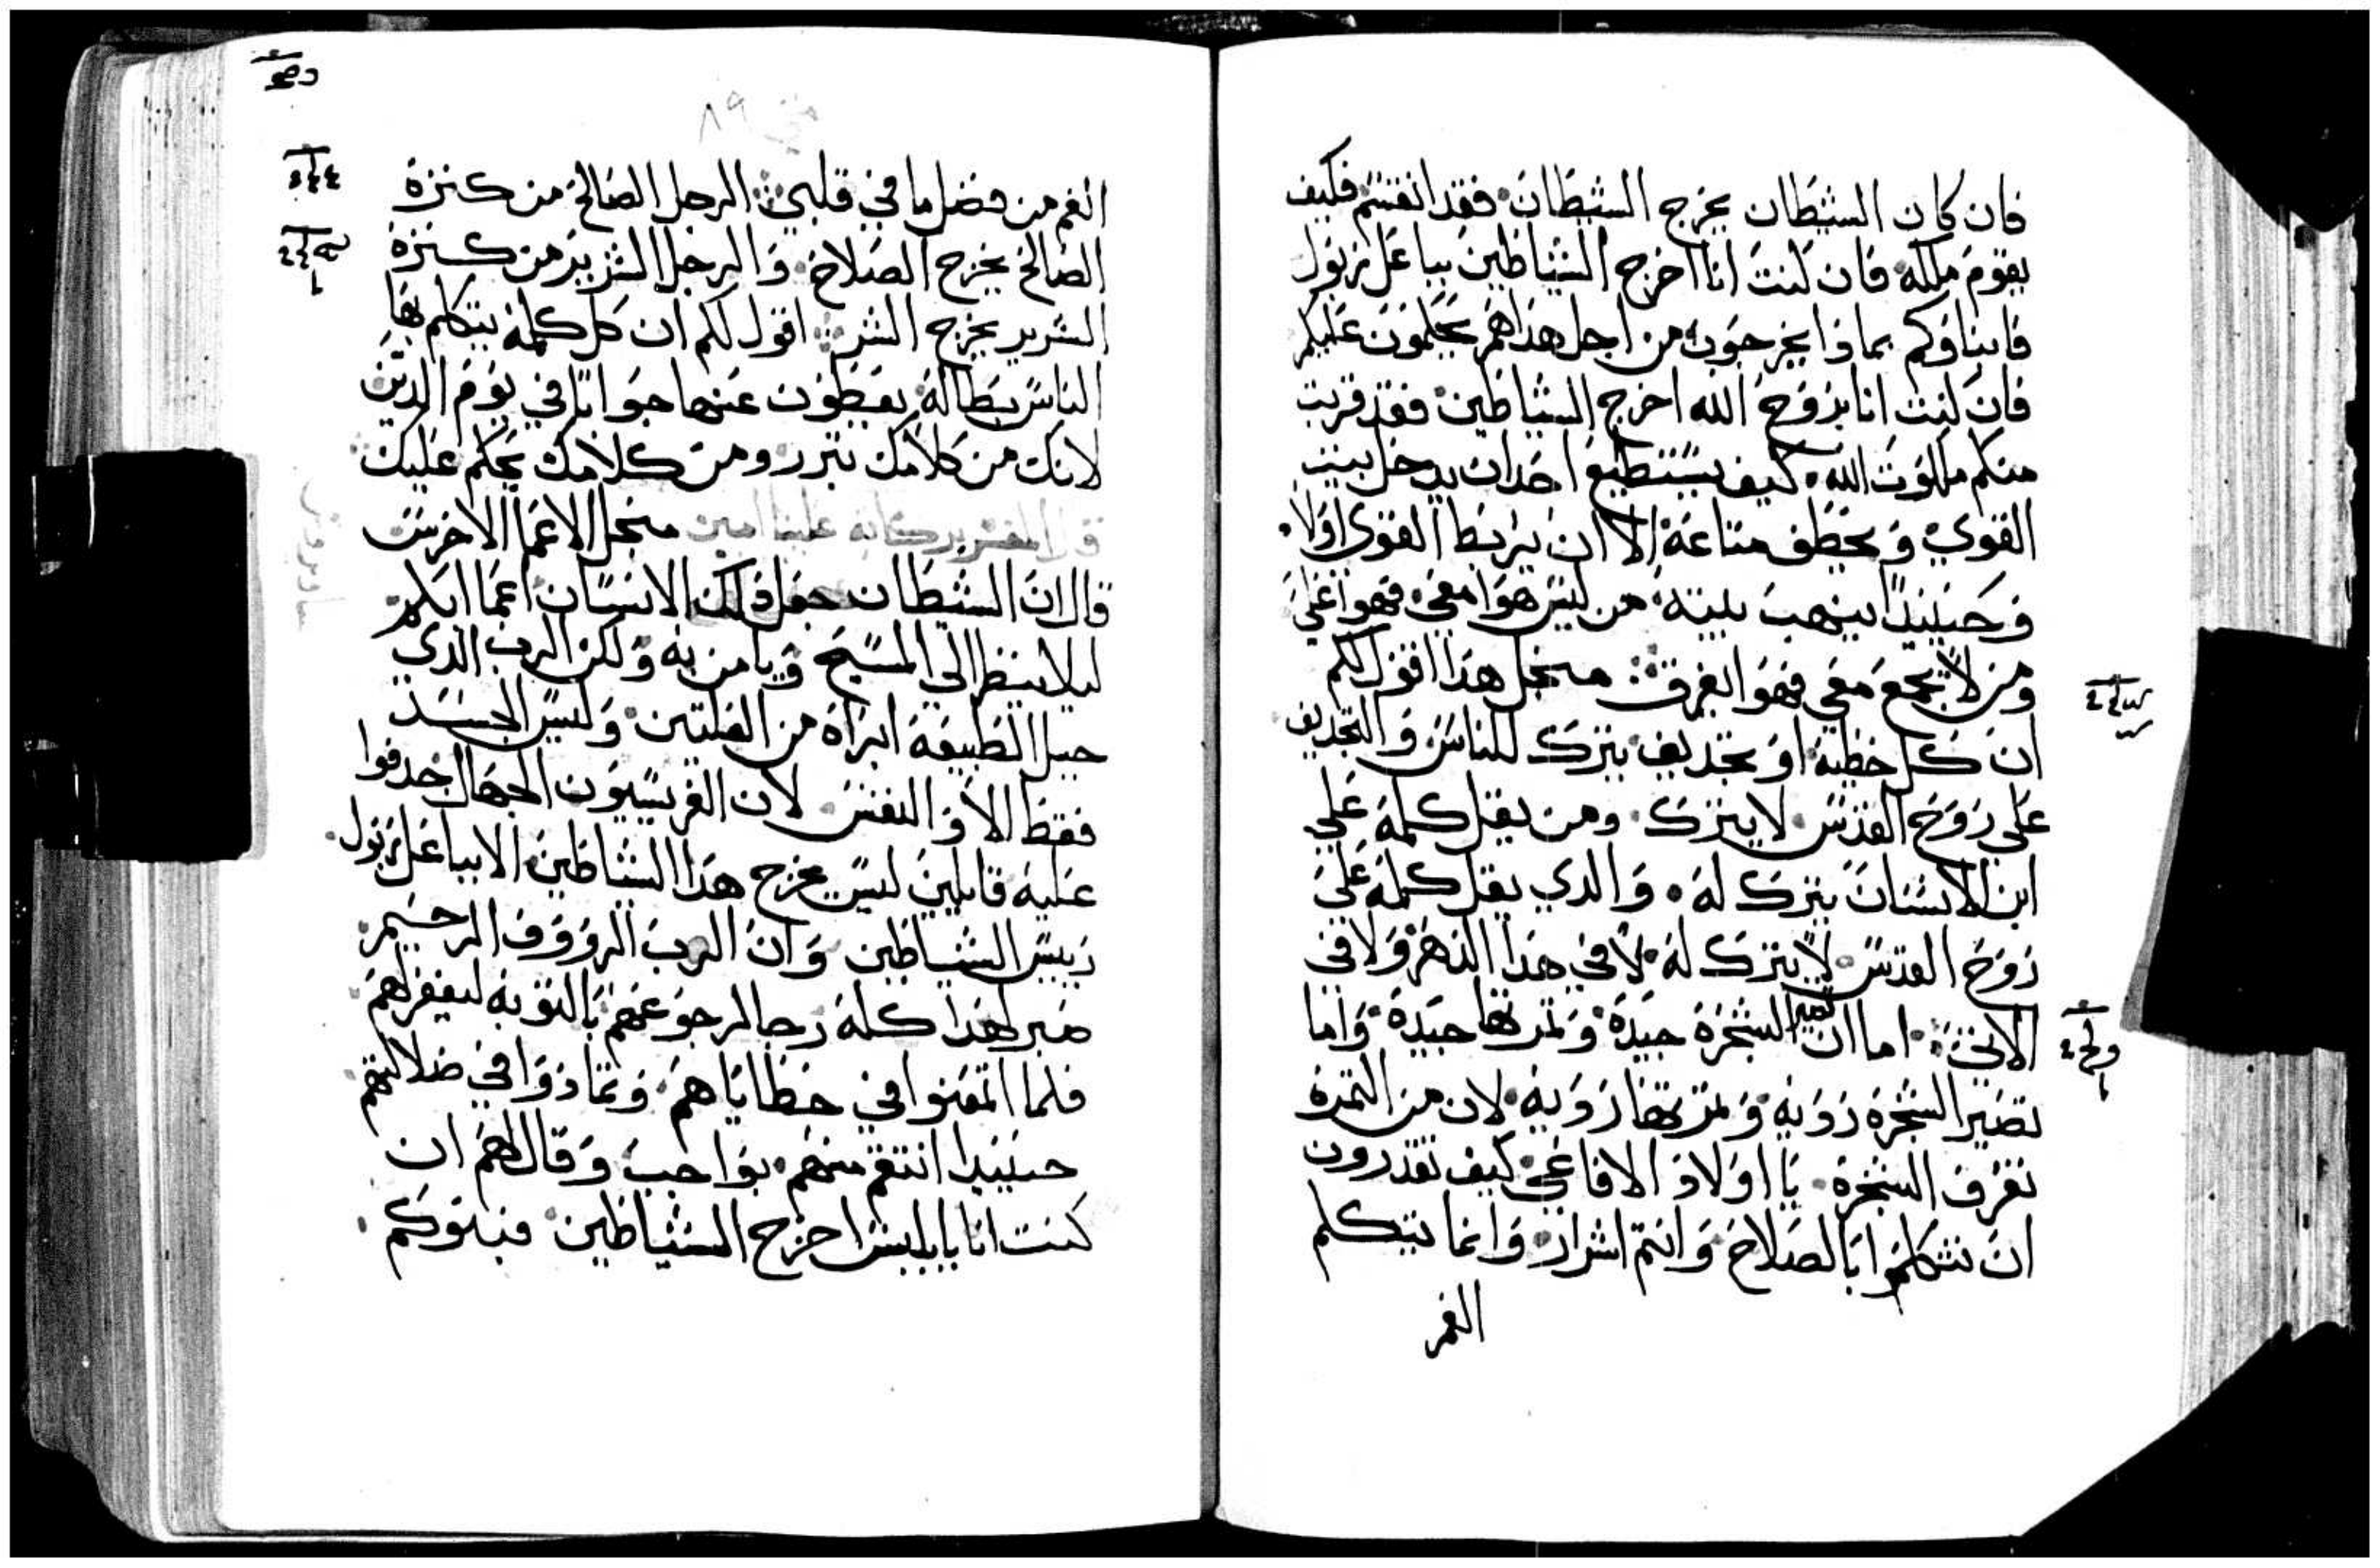 فان كان الشيطان يخرج الشيطان فقد انقسم فكيف
يقوم ملكه فان كنت انا اخرج الشياطين بباعل زبول
فابناوكم بماذا يخرجون من اجل هذا هم يحكمون عليكم
فان كنت انا بروح الله اخرج الشياطين فقد قربت
منكم ملكوت الله كيف يستطيع احد ان يدخل بيت
القوي و يخطف متاعه الا ان يربط القوي اولا
و حينيدا ينهب بيته من ليس هوا معي فهوا علي
ومن لا يجمع معي فهوا يفرق منجل هذا اقول لكم
ان كل خطية او تجديف يترك للناس و التجديف
علي روح القدس لا يترك ومن يقل كلمة علي
ابن الانسان يترك له و الدي يقل كلمة علي
روح القدس لا يترك له لا في هذا الدهر ولا في
الاتي اما ان تصير الشجرة جيدة و تمرتها جيدة و اما
تصير الشجرة رديه و تمرتها رديه لان من التمرة
تعرف الشجرة يا اولاد الافاعي كيف تقدرون
ان تتكلموا بالصلاح و انتم اشرار و انما يتكلم
الفم
٨٩
الفم من فضل ما في قلبي الرجل الصالح من كنزة
الصالح يخرج الصلاح و الرجل الشرير من كنزة
الشرير يخرج الشر اقول لكم ان كل كلمة يتكلم بها
الناس بطالة يعطون عنها جوابا في يوم الدين
لانك من كلامك تبرر ومن كلامك يحكم عليك
قال المفسر بركاته علينا امين منجل الاعما الاخرس
قال ان الشيطان جعل دلك الانسان اعما ابكم
ليلا ينظر الي المسيح و يامن به و لكن الرب الدي
جبل الطبيعة ابراه من العلتين و ليس الجسد
فقط الا و النفس لان الفريسيون الجهال جدفوا
عليه قايلين ليس يخرج هذا الشياطين الا بباعل زبول
رييس الشياطين و ان الرب الرووف الرحيم
صبر لهذا كله رجا لرجوعهم بالتوبه ليغفر لهم
فلما اتمعنوا في خطاياهم و تمادوا في ضلالتهم
حينيدا انتقم منهم بواجب و قال لهم ان
كنت انا باابليس اخرج الشياطين فبنوكم